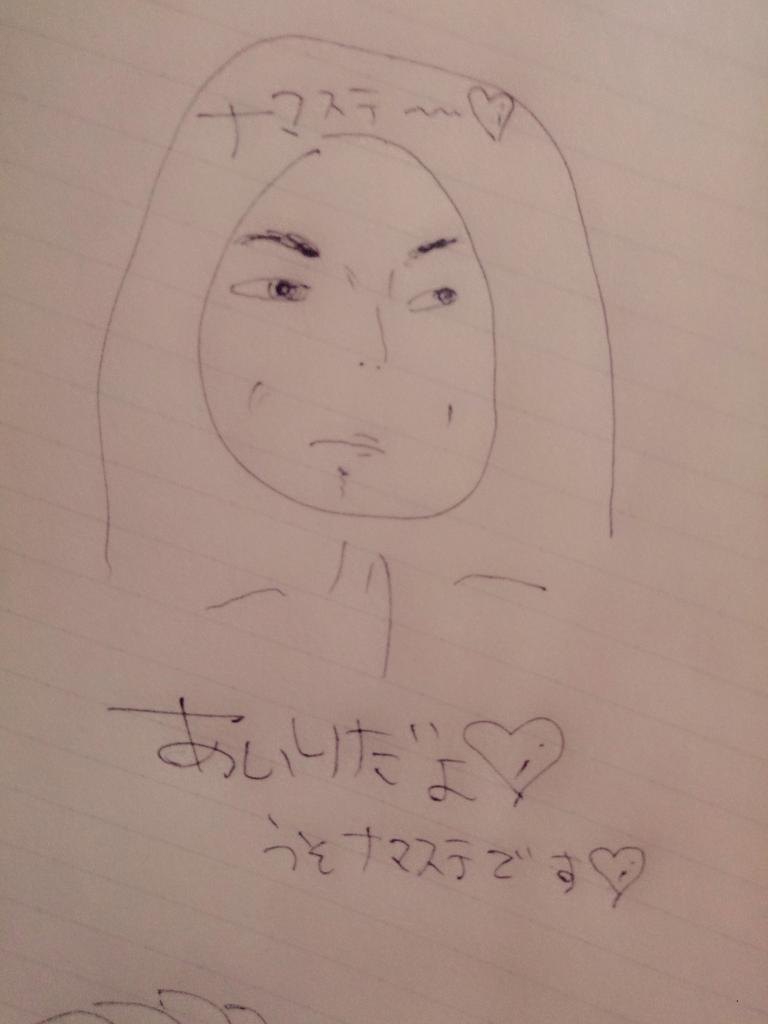 ナマステ〜♡
あいりだよ♡
うそナマステです♡